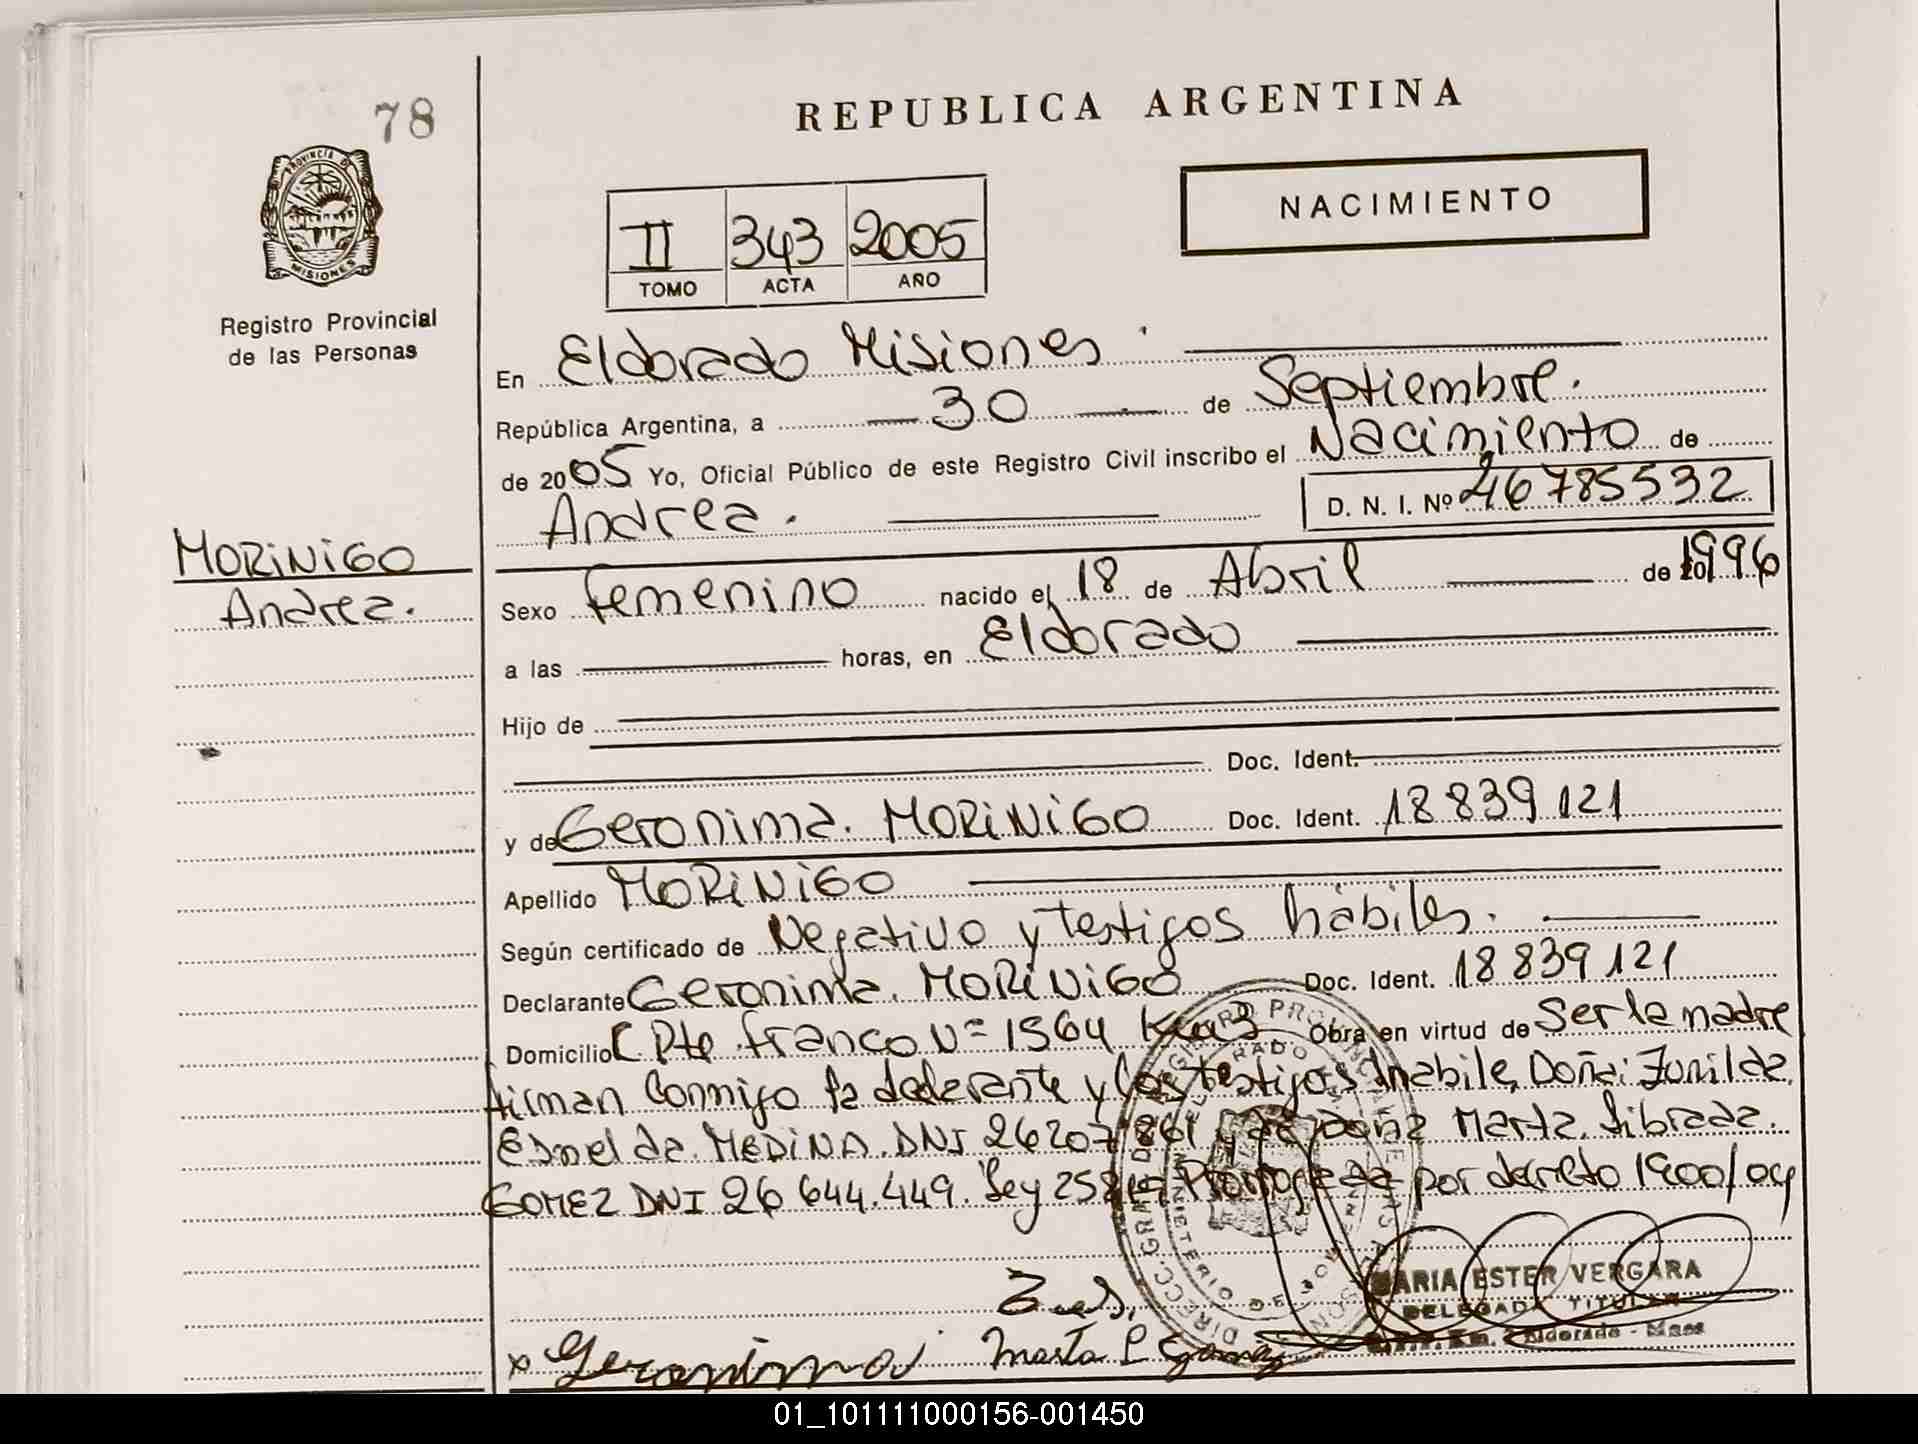 78
REPUBLICA ARGENTINA
NACIMIENTO
PROVINCIA DE MISIONES
Registro Provincial
de las Personas
II 343 2005
TOMO ACTA AÑO
En Eldorado Misiones
República Argentina, a 30 de Septiembre.
de 2005 Yo, Oficial Público de este Registro Civil inscribo el Nacimiento de
Andrea. D. N. I. Nº 46785532
MORINIGO
Andrea.
Sexo Femenino nacido el 18 de Abril de 1996
a las horas, en Eldorado
Hijo de
Doc. Ident.
y de Geronima. MORINIGO Doc. Ident. 18 839 121
Apellido MORINIGO
Según certificado de Negativo y testigos hábiles.
Declarante Geronima. MORINIGO Doc. Ident. 18 839 121
Domicilio C Pte. Franco Nº 1564 Km 3 Obra en virtud de Ser la madre
firman conmigo la declarante y los testigos Doña: Zunilda
MEDINA. DNI 26207861 y Doña Marta. Librada.
GOMEZ DNI 26 644.449. Ley Prorrogada por decreto 1900/04
MARIA ESTER VERGARA
DELEGADA TITULAR
Eldorado - Mnes
x Geronima Marta L Gomez
01_101111000156-001450